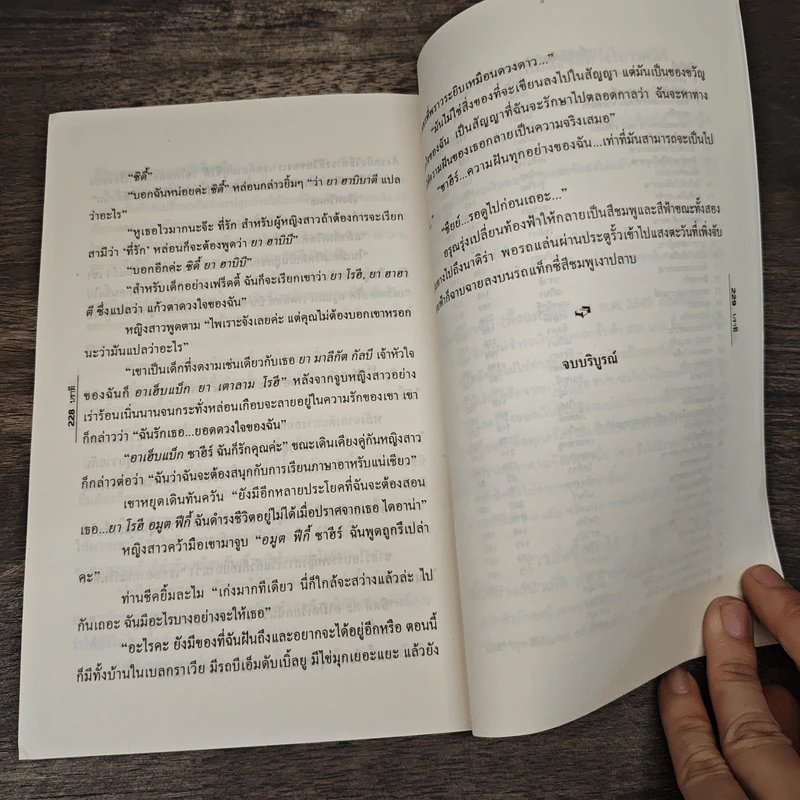 “ซิดี้”
“บอกฉันหน่อยค่ะ ซิดี้” หล่อนกล่าวยิ้มๆ “ว่า ยา ฮาบิบาตี แปล
ว่าอะไร”
“หูเธอไวมากนะจ๊ะ ที่รัก สำหรับผู้หญิงสาวถ้าต้องการจะเรียก
สามีว่า ‘ที่รัก’ หล่อนก็จะต้องพูดว่า ยา ฮาบิบี”
“บอกอีกค่ะ ซิดี้ ยา ฮาบิบี”
“สำหรับเด็กอย่างเฟร็ดดี้ ฉันก็จะเรียกเขาว่า ยา โรฮี, ยา ฮายา
ตี ซึ่งแปลว่า แก้วตาดวงใจของฉัน”
หญิงสาวพูดตาม “ไพเราะจังเลยค่ะ แต่คุณไม่ต้องบอกเขาหรอก
นะว่ามันแปลว่าอะไร”
“เขาเป็นเด็กที่งดงามเช่นเดียวกับเธอ ยา มาลีกัต กัลบี เจ้าหัวใจ
ของฉันก็ อาเฮ็บแบ็ก ยา เตาลาม โรฮี” หลังจากจูบหญิงสาวอย่าง
เร่าร้อนเนิ่นนานจนกระทั่งหล่อนเกือบจะลายอยู่ในความรักของเขา เขา
ก็กล่าวว่า “ฉันรักเธอ...ยอดดวงใจของฉัน”
“อาเฮ็บแบ็ก ซาฮีร์ ฉันก็รักคุณค่ะ” ขณะเดินเคียงคู่กันหญิงสาว
ก็กล่าวต่อว่า “ฉันว่าฉันจะต้องสนุกกับการเรียนภาษาอาหรับแน่เชียว”
เขาหยุดเดินทันควัน “ยังมีอีกหลายประโยคที่ฉันจะต้องสอน
เธอ...ยา โรฮี อมูต ฟีกี้ ฉันดำรงชีวิตอยู่ไม่ได้เมื่อปราศจากเธอ ไดอาน่า”
หญิงสาวคว้ามือเขามาจูบ “อมูต ฟีกี้ ซาฮีร์ ฉันพูดถูกรึเปล่า
คะ”
ท่านชีคยิ้มละไม “เก่งมากทีเดียว นี่ก็ใกล้จะสว่างแล้วล่ะ ไป
กันเถอะ ฉันมีอะไรบางอย่างจะให้เธอ”
“อะไรคะ ยังมีของที่ฉันฝันถึงและอยากจะได้อยู่อีกหรือ ตอนนี้
ก็มีทั้งบ้านในเบลกราเวีย มีรถบีเอ็มดับเบิ้ลยู มีไข่มุกเยอะแยะ แล้วยัง
228 บราลี
ระยิบเหมือนดวงดาว...”
“มันไม่ใช่สิ่งของที่จะเขียนลงไปในสัญญา แต่มันเป็นของขวัญ
ของฉัน เป็นสัญญาที่ฉันจะรักษาไปตลอดกาลว่า ฉันจะหาทาง
ความฝันของเธอกลายเป็นความจริงเสมอ”
“ซาฮีร์...ความฝันทุกอย่างของฉัน...เท่าที่มันสามารถจะเป็นไป
“ชิยย์...รอดูไปก่อนเถอะ...”
อรุณรุ่งเปลี่ยนท้องฟ้าให้กลายเป็นสีชมพูและสีฟ้าขณะทั้งสอง
ทางไปถึงนาดิร่า พอรถแล่นผ่านประตูรั้วเข้าไปแสงตะวันที่เพิ่งจับ
ฟ้าก็ฉาบฉายลงบนรถแท็กซี่สีชมพูเงาปลาบ
จบบริบูรณ์
229